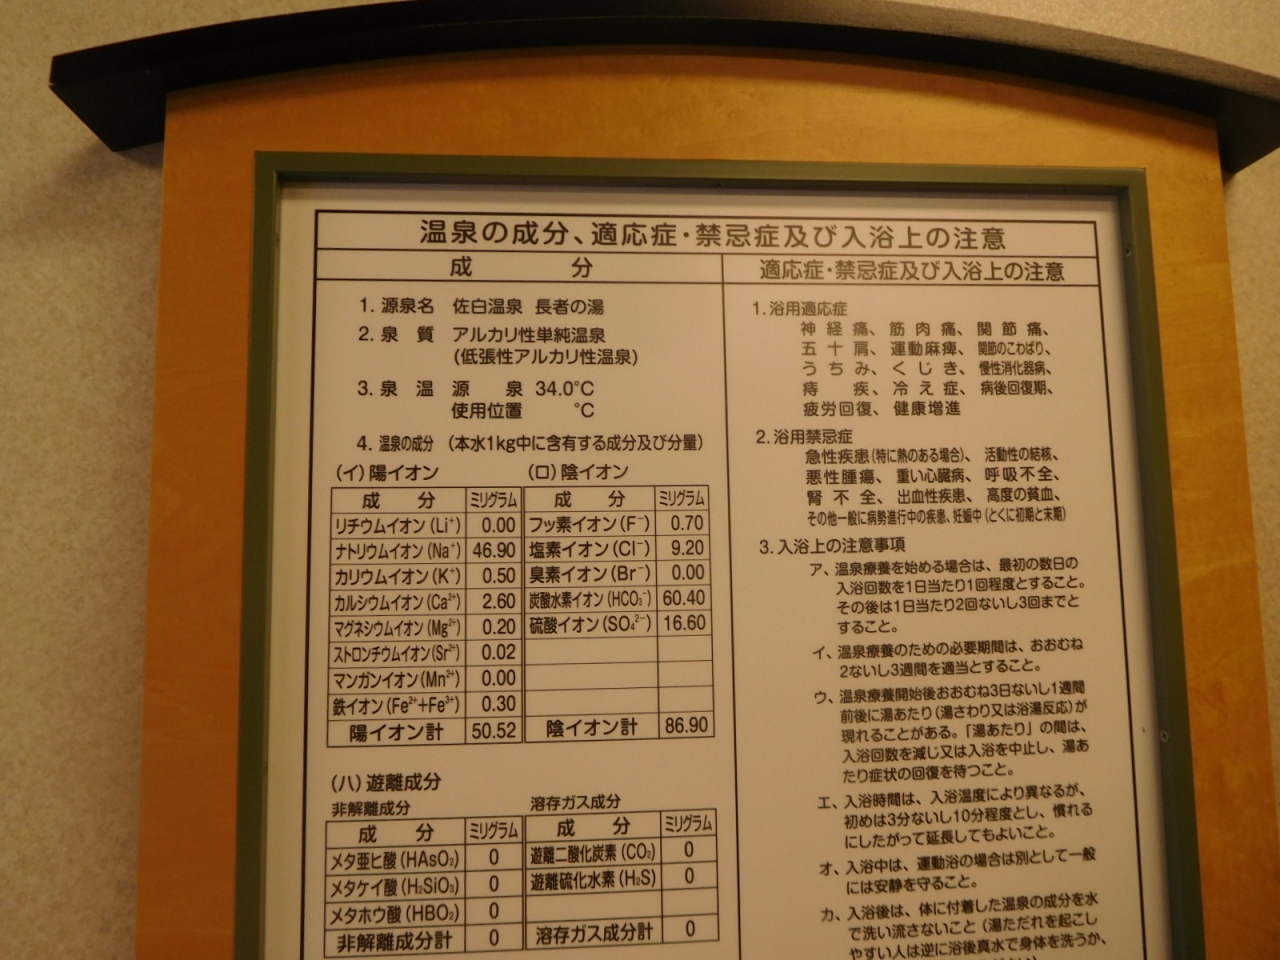 温泉の成分、適応症・禁忌症及び入浴上の注意
成 分
1. 源泉名 佐白温泉 長者の湯
2. 泉 質 アルカリ性単純温泉
(低張性アルカリ性温泉)
3. 泉 温 源 泉 34.0℃
使用位置 ℃
4. 温泉の成分 (本水1kg中に含有する成分及び分量)
(イ)陽イオン (ロ)陰イオン
成 分 ミリグラム 成 分 ミリグラム
リチウムイオン(Li⁺) 0.00 フッ素イオン(F⁻) 0.70
ナトリウムイオン(Na⁺) 46.90 塩素イオン(Cl⁻) 9.20
カリウムイオン(K⁺) 0.50 臭素イオン(Br⁻) 0.00
カルシウムイオン(Ca²⁺) 2.60 炭酸水素イオン(HCO₃⁻) 60.40
マグネシウムイオン(Mg²⁺) 0.20 硫酸イオン(SO₄²⁻) 16.60
ストロンチウムイオン(Sr²⁺) 0.02
マンガンイオン(Mn²⁺) 0.00
鉄イオン(Fe²⁺+Fe³⁺) 0.30
陽イオン計 50.52 陰イオン計 86.90
(ハ)遊離成分
非解離成分 溶存ガス成分
成 分 ミリグラム 成 分 ミリグラム
メタ亜ヒ酸(HAsO₂) 0 遊離二酸化炭素(CO₂) 0
メタケイ酸(H₂SiO₃) 0 遊離硫化水素(H₂S) 0
メタホウ酸(HBO₂) 0
非解離成分計 0 溶存ガス成分計 0
適応症・禁忌症及び入浴上の注意
1. 浴用適応症
神経痛、筋肉痛、関節痛、
五十肩、運動麻痺、関節のこわばり、
うちみ、くじき、慢性消化器病、
痔 疾、冷え症、病後回復期、
疲労回復、健康増進
2. 浴用禁忌症
急性疾患(特に熱のある場合)、活動性の結核、
悪性腫瘍、重い心臓病、呼吸不全、
腎不全、出血性疾患、高度の貧血、
その他一般に病勢進行中の疾患、妊娠中(とくに初期と末期)
3. 入浴上の注意事項
ア、温泉療養を始める場合は、最初の数日の
入浴回数を1日当たり1回程度とすること。
その後は1日当たり2回ないし3回までと
すること。
イ、温泉療養のための必要期間は、おおむね
2ないし3週間を適当とすること。
ウ、温泉療養開始後おおむね3日ないし1週間
前後に湯あたり(湯さわり又は浴湯反応)が
現れることがある。「湯あたり」の間は、
入浴回数を減じ又は入浴を中止し、湯あ
たり症状の回復を待つこと。
エ、入浴時間は、入浴温度により異なるが、
初めは3分ないし10分程度とし、慣れる
にしたがって延長してもよいこと。
オ、入浴中は、運動浴の場合は別として一般
には安静を守ること。
カ、入浴後は、体に付着した温泉の成分を水
で洗い流さないこと(湯ただれを起こし
やすい人は逆に浴後真水で身体を洗うか、